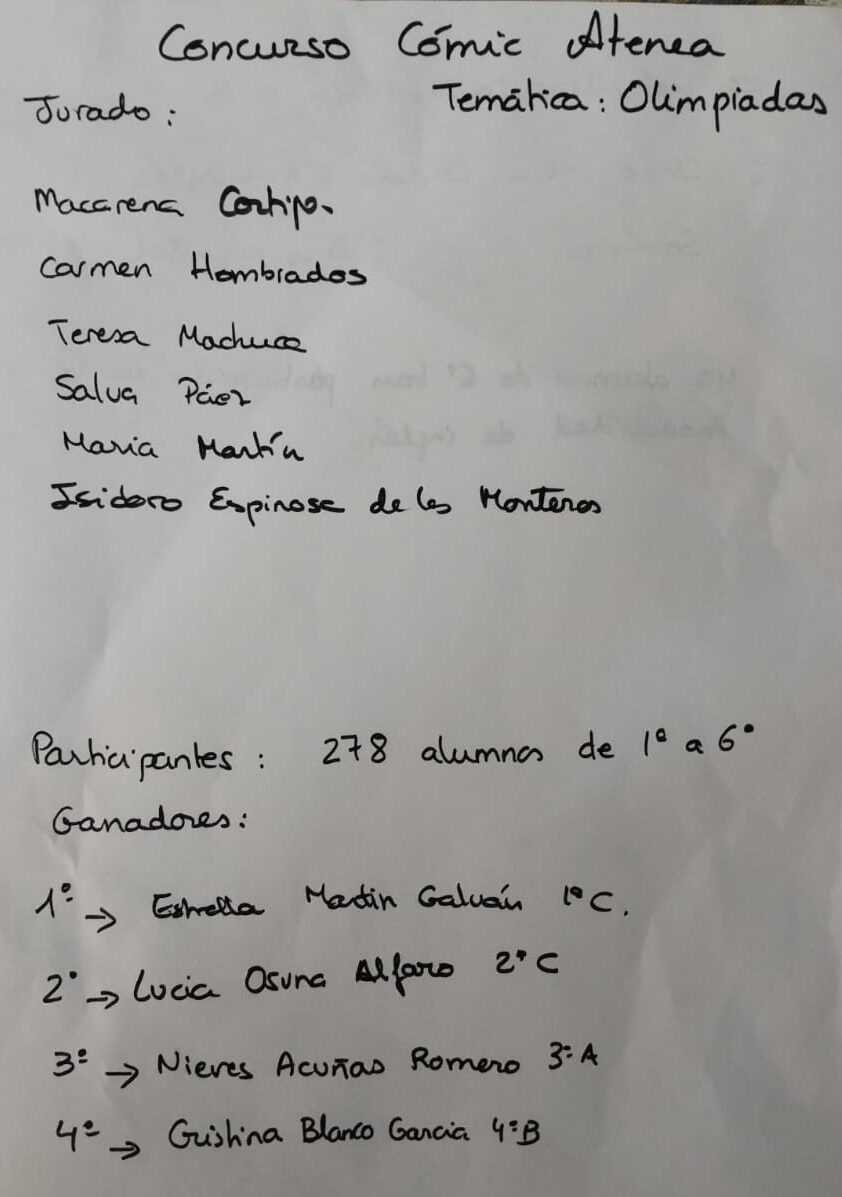 Concurso Cómic Atenea
Jurado: Temática: Olimpiadas
Macarena
Carmen Hombrados
Teresa Machuca
Salva Páez
Maria Martín
Isidoro Espinosa de los Monteros
Participantes: 278 alumnos de 1º a 6º
Ganadores:
1º → Estrella Martin Galván 1º C.
2º → Lucia Osuna Alfaro 2º C
3º → Nieves Acuñas Romero 3º A
4º → Cristina Blanco Garcia 4º B